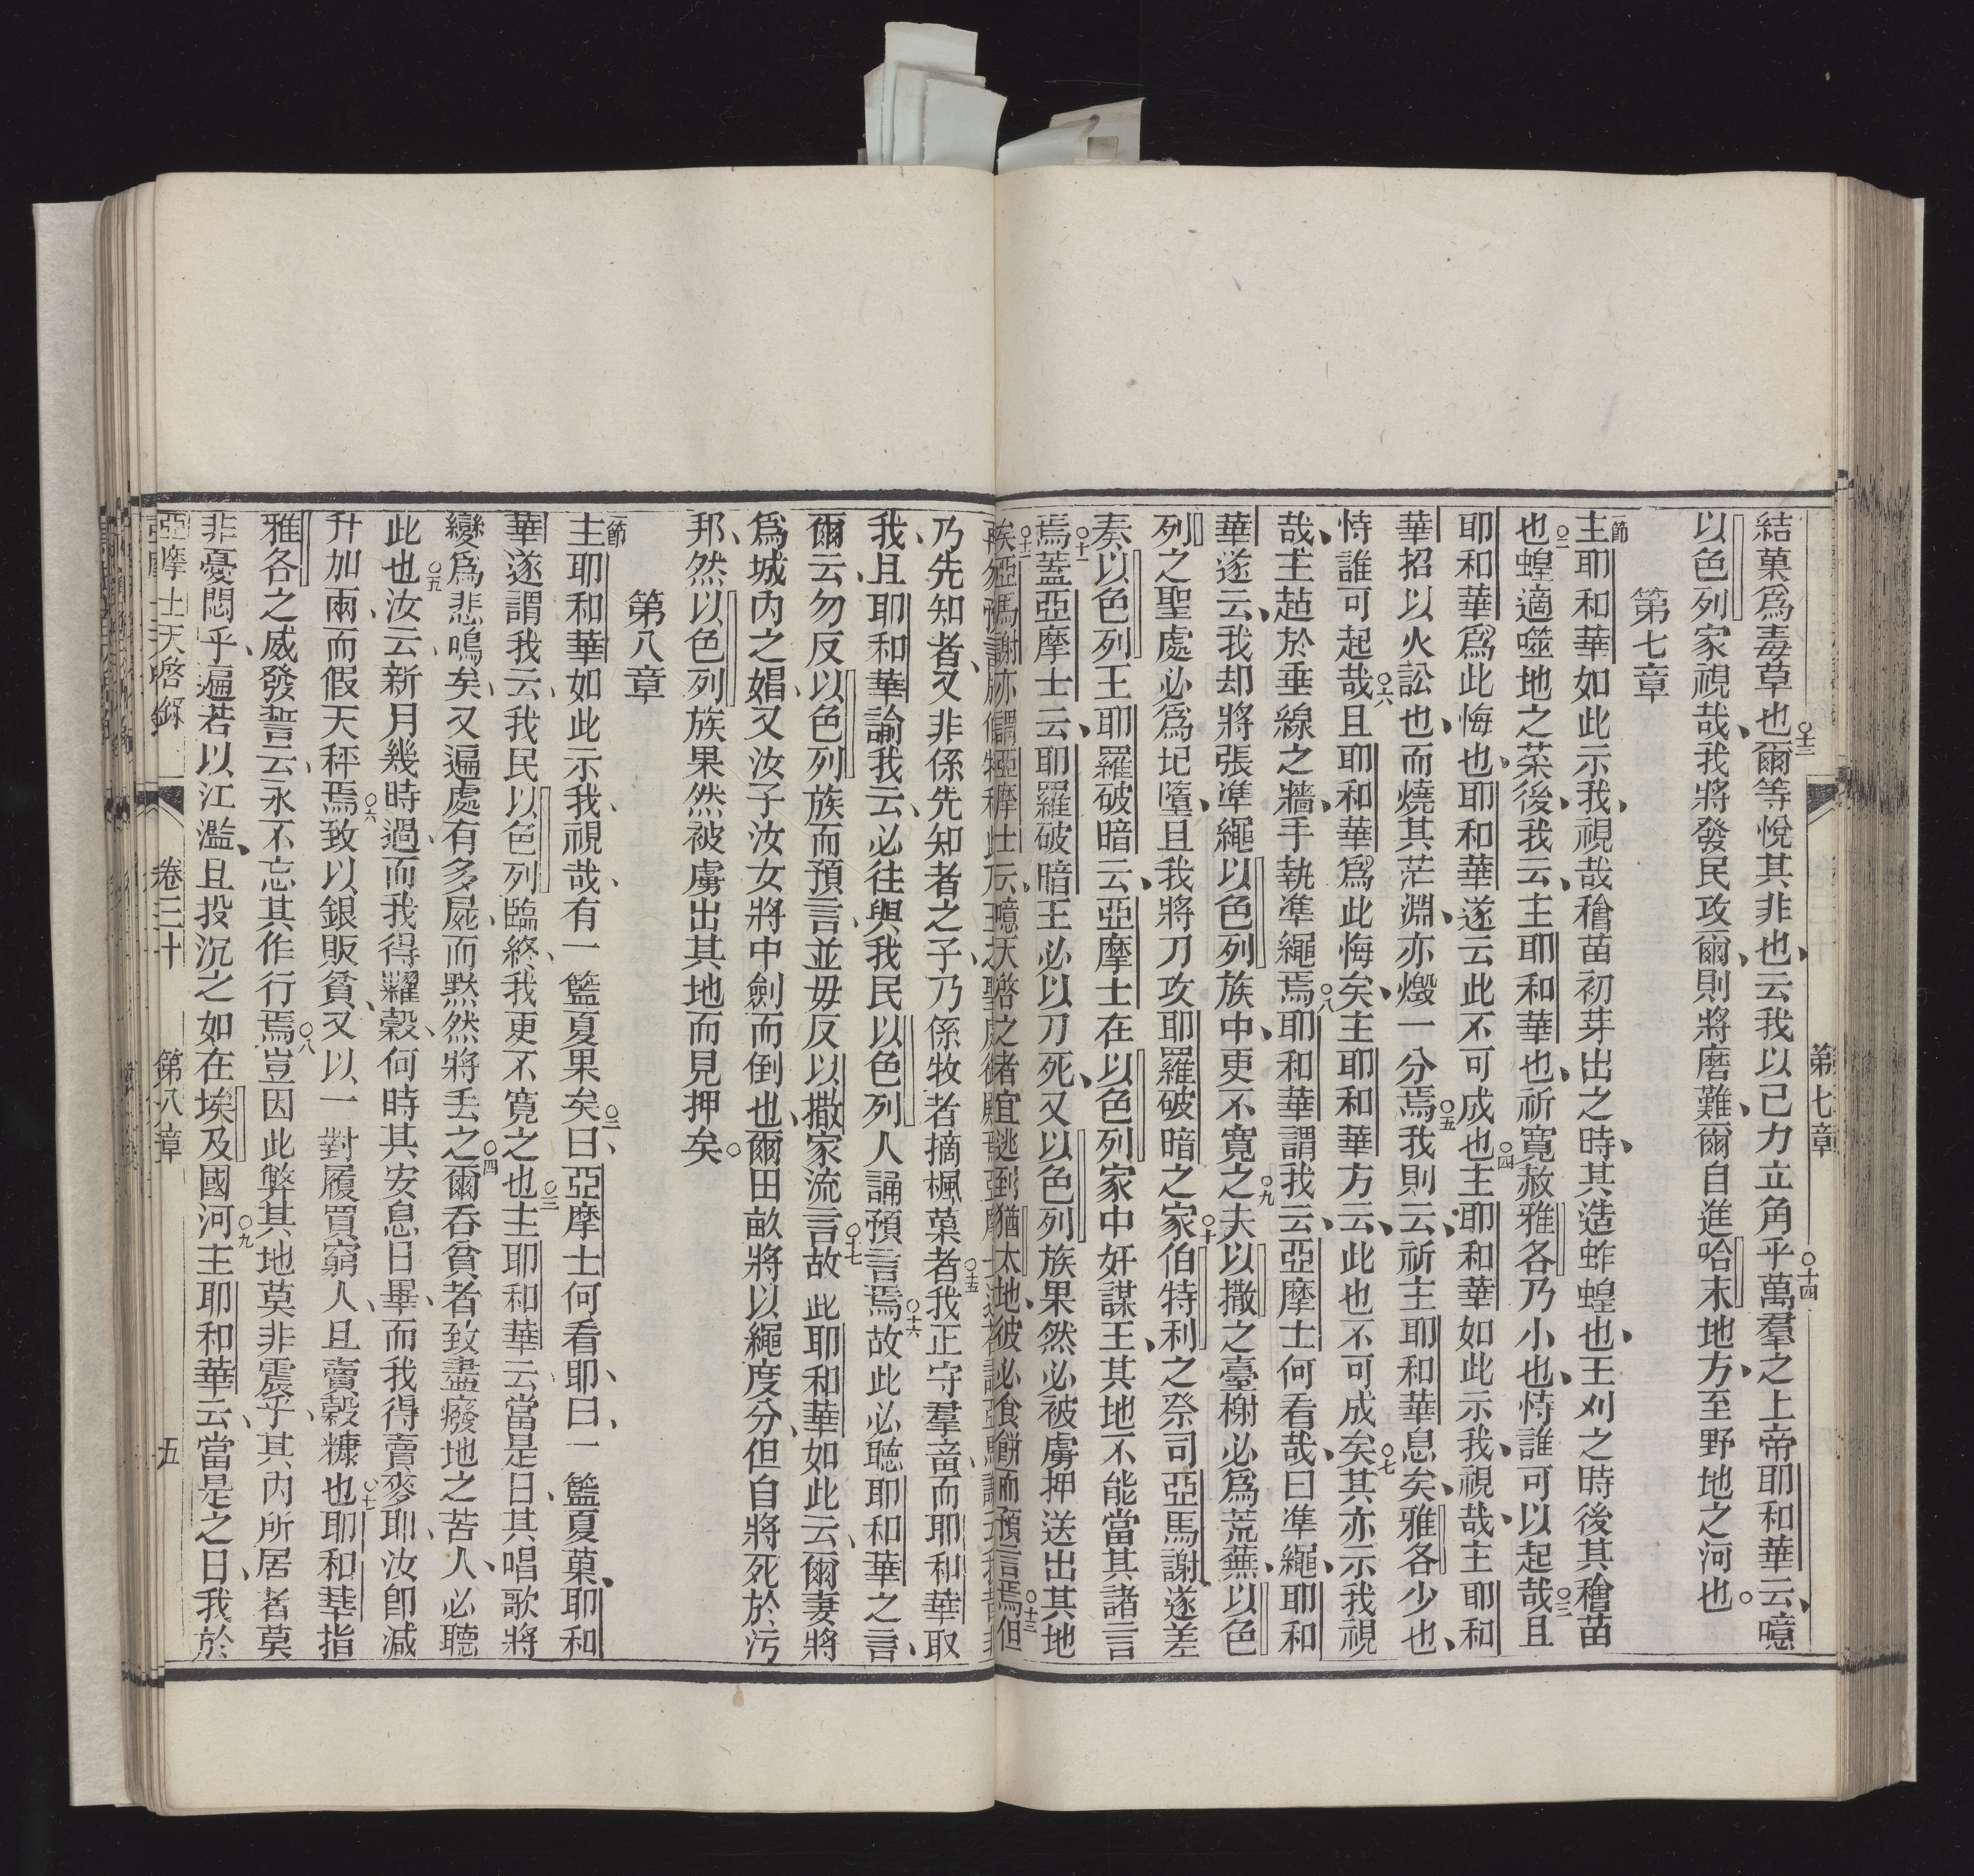 第七章
結菓爲毒草也○十三爾等悅其非也云我以己力立角乎○十四萬羣之上帝耶和華云噫
以色列家視哉我將發民攻爾則將磨難爾自進哈末地方至野地之河也○
第七章
一節主耶和華如此示我視哉穡苗初芽出之時其造蚱蝗也王刈之時後其穡苗
也○二蝗適噬地之菜後我云主耶和華也祈寬赦雅各乃小也恃誰可以起哉○三且
耶和華爲此悔也耶和華遂云此不可成也○四主耶和華如此示我視哉主耶和
華招以火訟也而燒其茫淵亦燬一分焉○五我則云祈主耶和華息矣雅各少也
恃誰可起哉○六且耶和華爲此悔矣主耶和華方云此也不可成矣○七其亦示我視
哉主趈於垂線之牆手執準繩焉○八耶和華謂我云亞摩士何看哉曰準繩耶和
華遂云我却將張準繩以色列族中更不寬之○九夫以撒之臺榭必爲荒蕪以色
列之聖處必爲圮墮且我將刀攻耶羅破暗之家○十伯特利之祭司亞馬謝遂差
奏以色列王耶羅破暗云亞摩士在以色列家中奸謀王其地不能當其諸言
焉○十一蓋亞摩士云耶羅破暗王必以刀死又以色列族果然必被虜押送出其地
矣○十二亞馬謝亦謂亞摩士云噫天啓之者宜逃到猶太地彼必食餅而預言焉○十三但
乃先知者又非係先知者之子乃係牧者摘楓菓者○十五我正守羣畜而耶和華取
我且耶和華諭我云必往與我民以色列人誦預言焉○十六故此必聽耶和華之言
爾云勿反以色列族而預言並毋反以撒家流言○十七故此耶和華如此云爾妻將
爲城內之娼又汝子汝女將中劍而倒也爾田畝將以繩度分但自將死於污
邦然以色列族果然被虜出其地而見押矣○
第八章
一節主耶和華如此示我視哉有一籃夏果矣○二曰亞摩士何看耶曰一籃夏菓耶和
華遂謂我云我民以色列臨終我更不寬之也○三主耶和華云當是日其唱歌將
變爲悲鳴矣又遍處有多屍而默然將丢之○四爾吞貧者致盡癈地之苦人必聽
此也○五汝云新月幾時過而我得糶穀何時其安息日畢而我得賣麥耶汝卽減
升加兩而假天秤焉○六致以銀販貧又以一對履買窮人且賣穀糠也○七耶和華指
雅各之威發誓云永不忘其作行焉○八豈因此弊其地莫非震乎其內所居者莫
非憂悶乎遍若以江濫且投沉之如在埃及國河○九主耶和華云當是之日我於
亞摩士天啓錄 卷三十 第八章 五